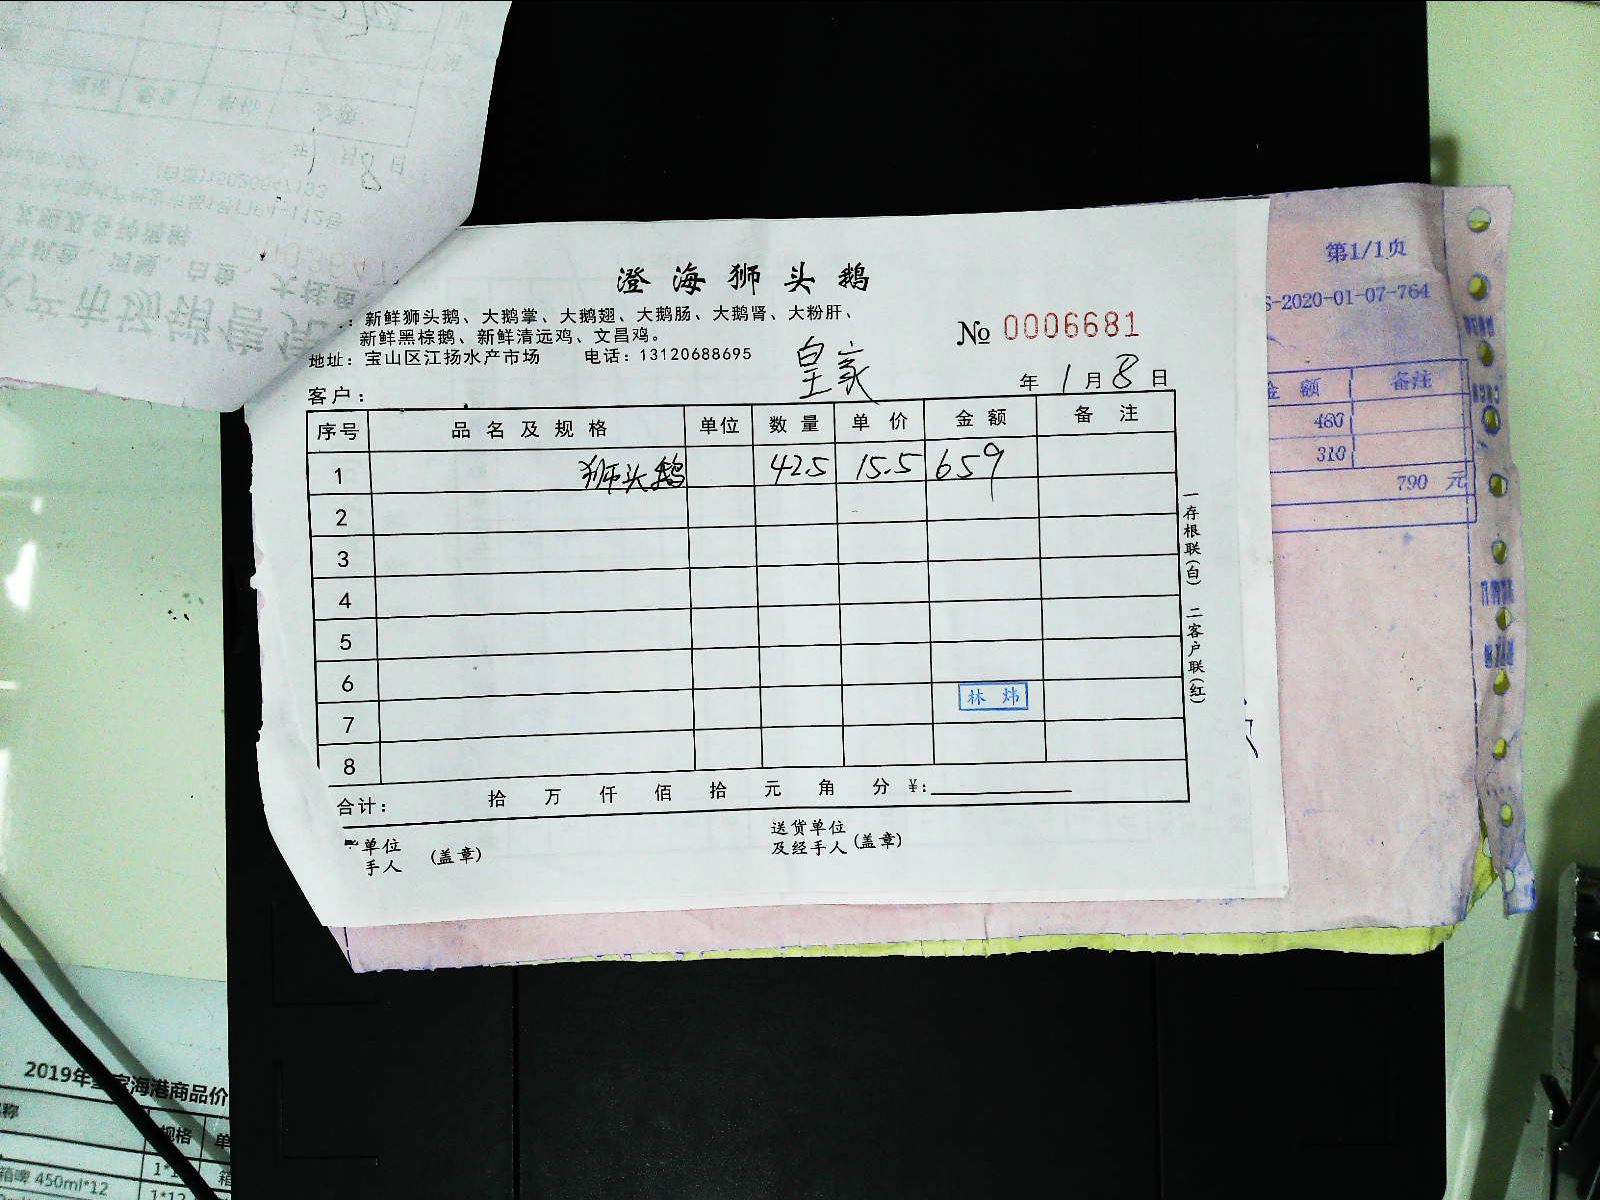 澄海狮头鹅
新鲜狮头鹅、大鹅掌、大鹅翅、大鹅肠、大鹅肾、大粉肝、
新鲜黑棕鹅、新鲜清远鸡、文昌鸡。
地址：宝山区江扬水产市场 电话：13120688695
No 0006681
客户： 皇家 年 1月8日
序号 品名及规格 单位 数量 单价 金额 备注
1 狮头鹅 42.5 15.5 659
2
3
4
5
6
林炜
7
8
合计： 拾 万 仟 佰 拾 元 角 分 ¥:
单位
手人 (盖章)
送货单位
及经手人 (盖章)
一存根联(白) 二客户联(红)
第1/1页
S-2020-01-07-764
金额 备注
480
310
790 元
年1月8日
水产市场销售
2019年 家海港商品价
规格 单
450ml*12
1*12